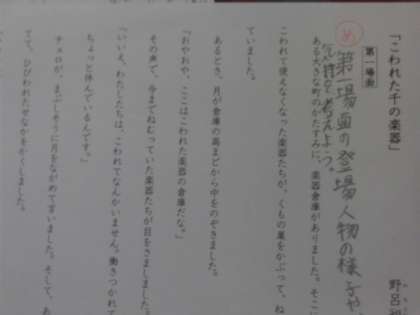 「こわれた千の楽器」
野呂
第一場面
め
第一場面の登場人物の様子や、
気持ちを考えよう。
ある大きな町のかたすみに、楽器倉庫がありました。そこ
こわれて使えなくなった楽器たちが、くもの巣をかぶって、ね
ていました。
あるとき、月が倉庫の高まどから中をのぞきました。
「おやおや、ここはこわれた楽器の倉庫だな。」
その声で、今までねむっていた楽器たちが目をさましました。
「いいえ、わたしたちは、こわれてなんかいません。働きつかれて
ちょっと休んでいるんです。」
チェロが、まぶしそうに月をながめて言いました。そして、あ
てて、ひびわれたせなかをかくしました。